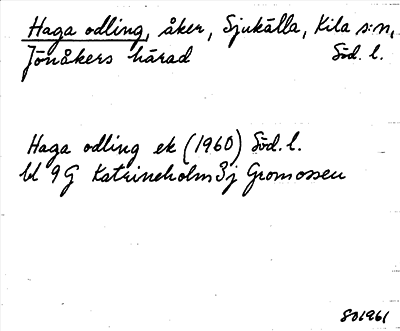 Haga odling, åker, Sjukälla, Kila s:n,
Jönåkers härad Söd. l.
Haga odling ek (1960) Söd. l.
bl 9G Katrineholm 3j Gromossen
801961